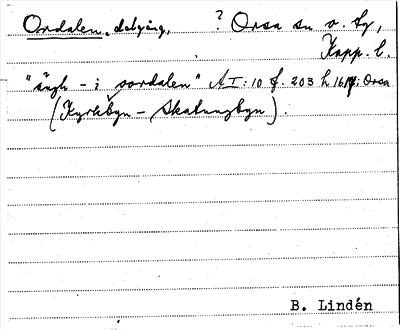 Oordalen, dalgång, ? Orsa sn o. tg,
Kopp. l.
"ängh - i oordalen" AI:10 f. 203 h 16[?]: Orsa
(Kyrkbyn - Skattungbyn).
B. Lindén